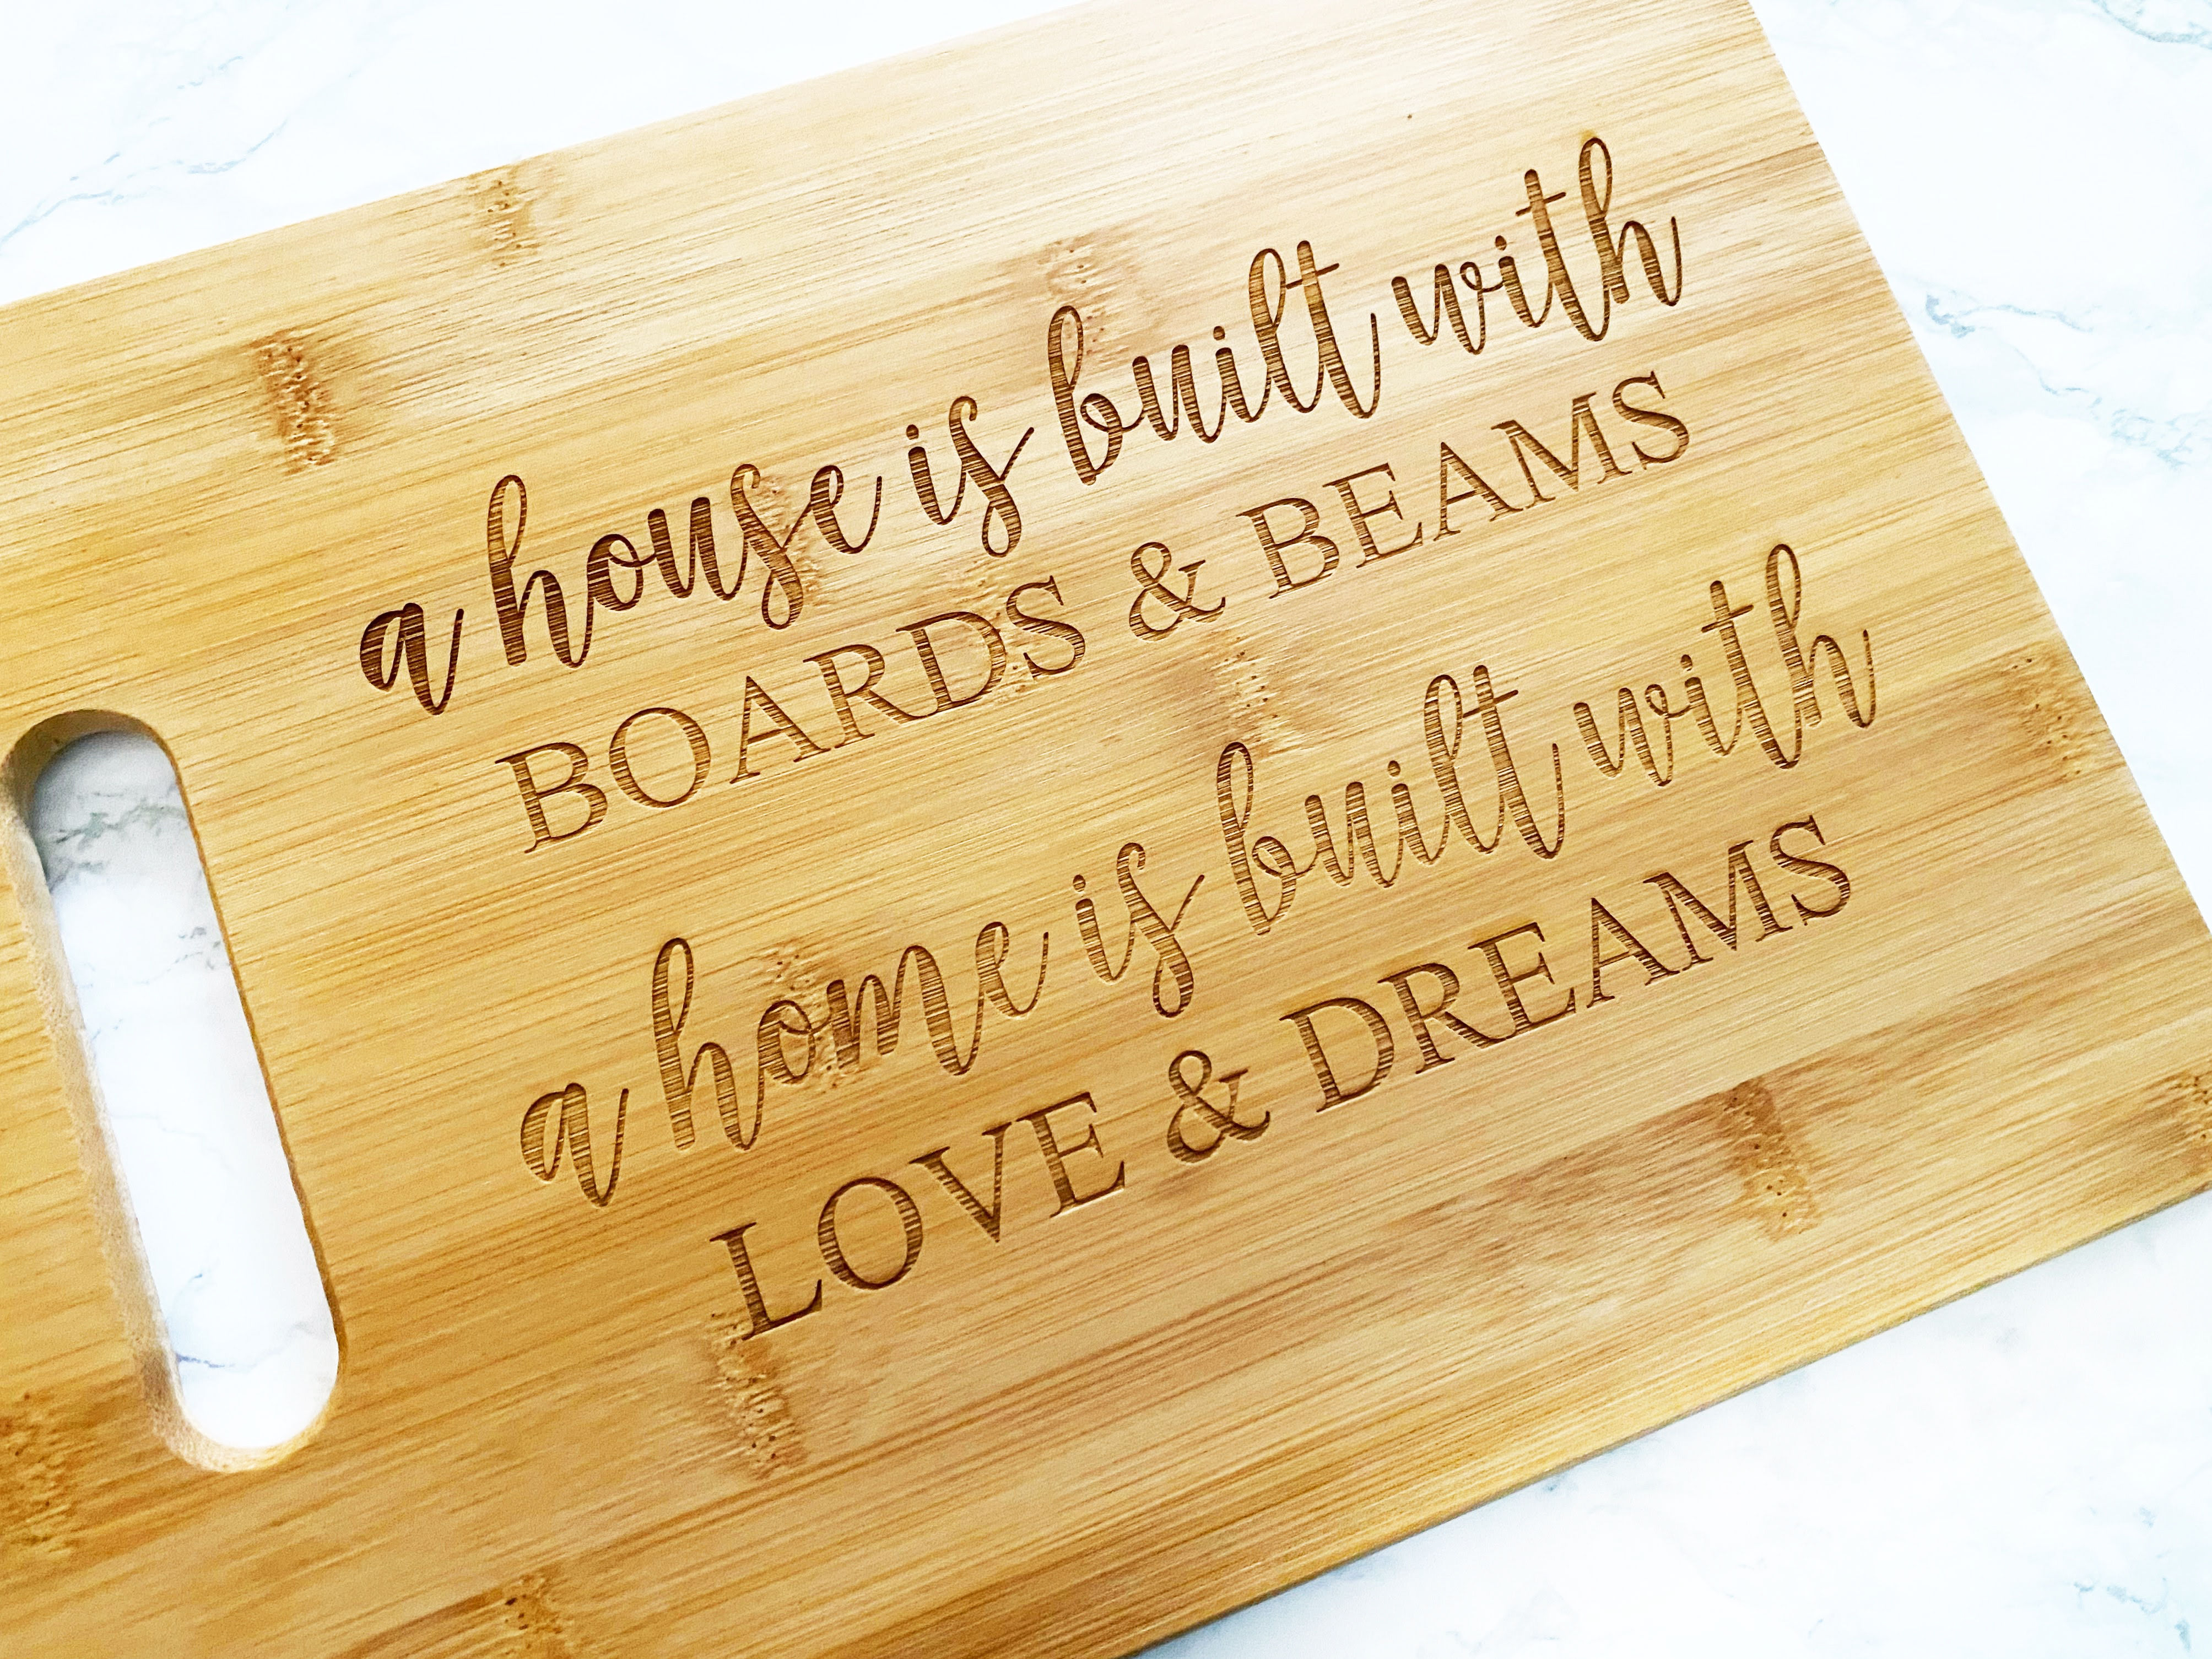 a house is built with
BOARDS & BEAMS
a home is built with
LOVE & DREAMS